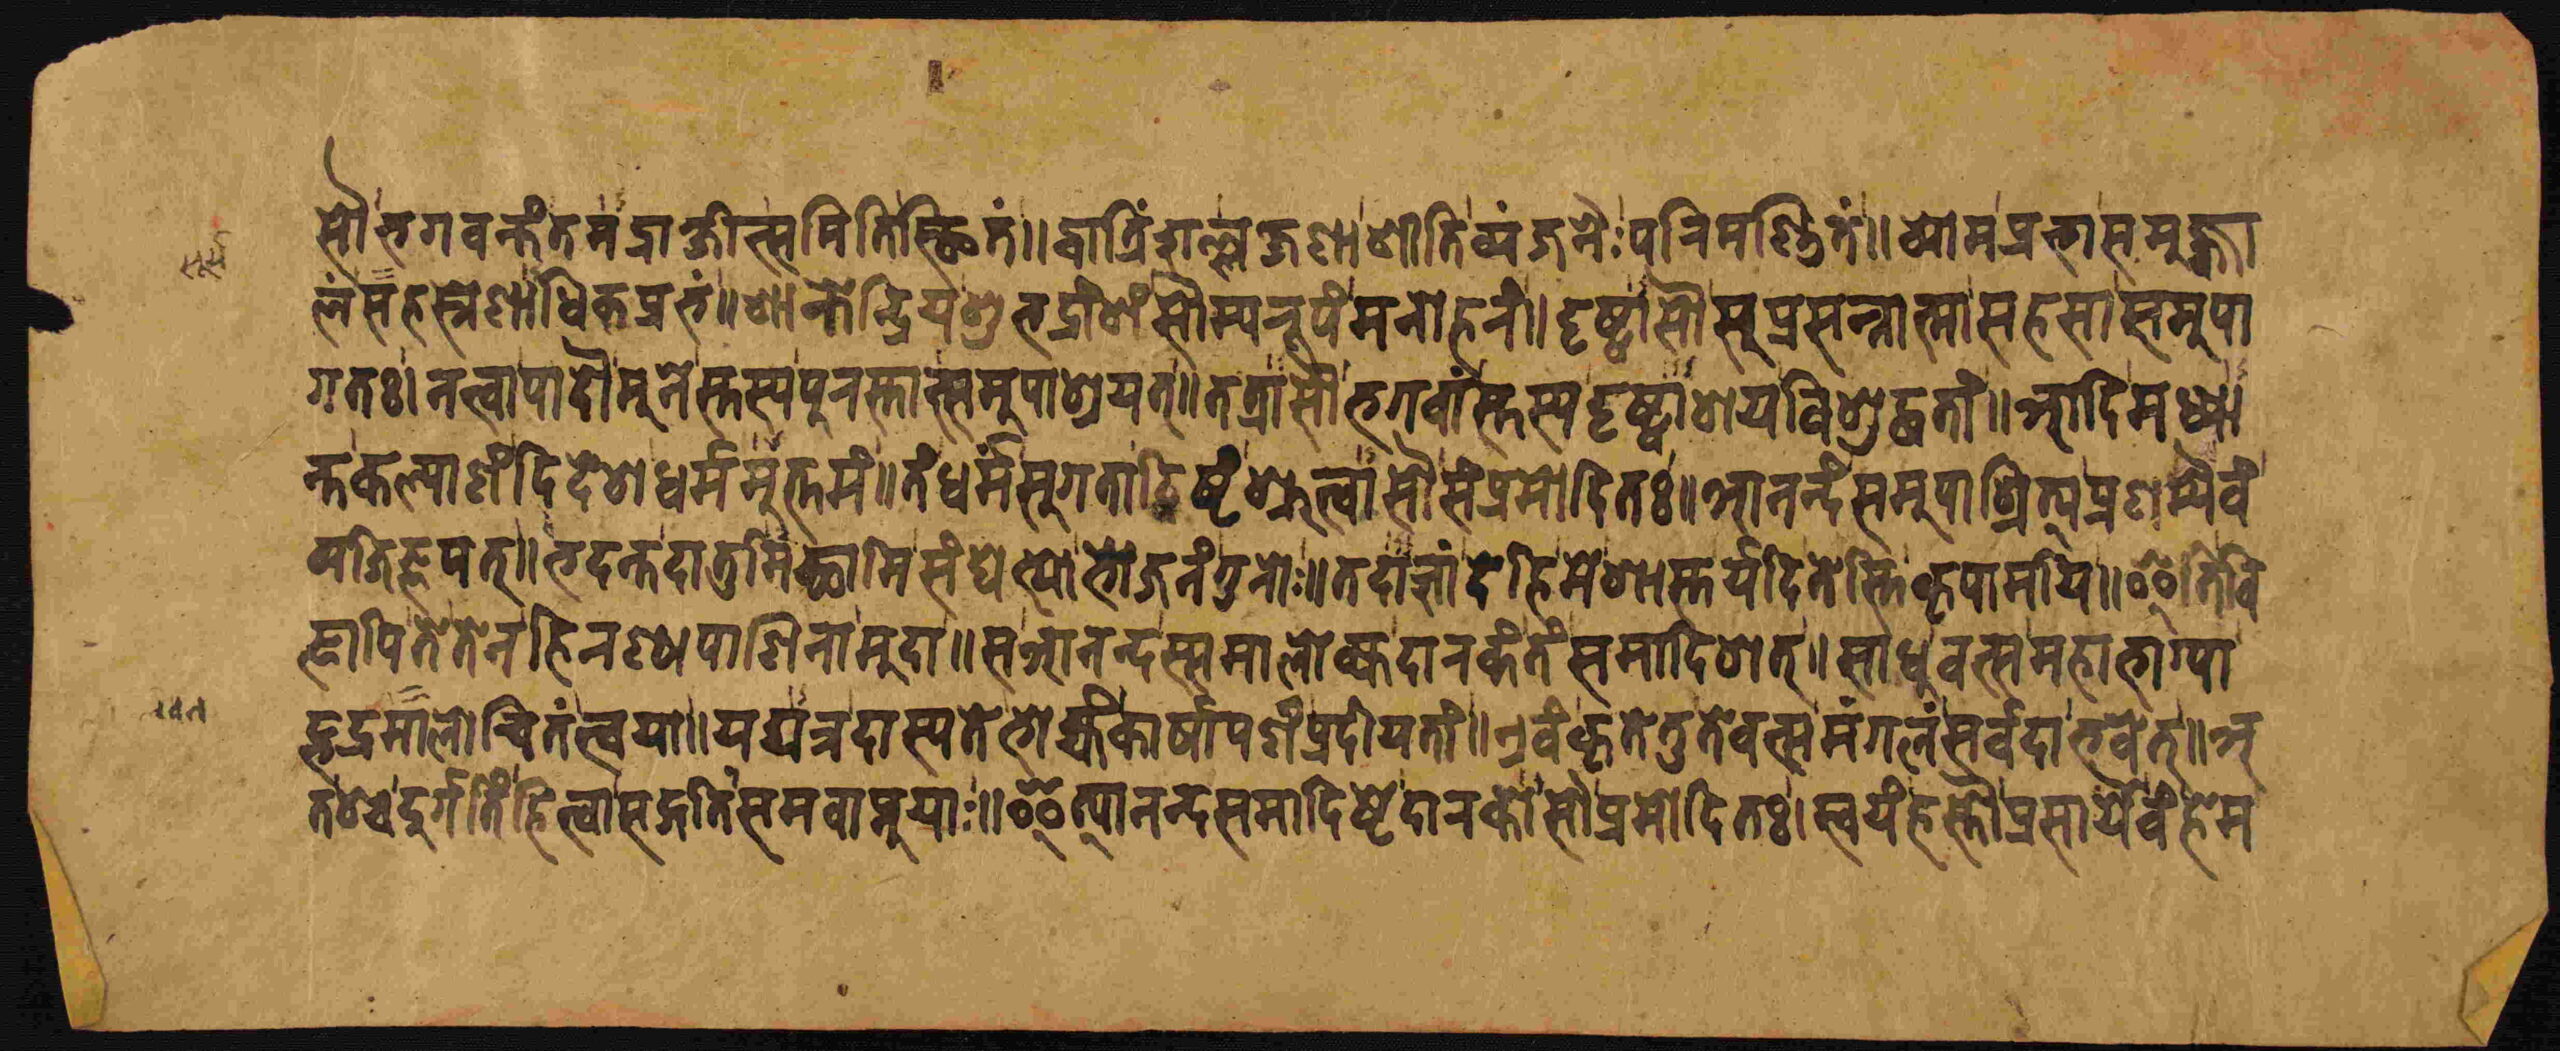 सौभगवन्तंतमद्राक्षीत्समितिस्थितं॥द्वात्रिंशल्लक्षणाशीतिव्यंजनैःपरिमण्डितं॥व्योमप्रभासमुज्ज्वा
लंसहस्रेणाधिकप्रभं॥शान्तेन्द्रियशुभद्रांशंसौम्यरूपंमनोहरं।दृष्ट्वासौसुप्रसन्नात्मासहसासमुपा
गतः।नत्वापादौमुनेस्तस्यपुरस्तात्समुपाश्रयत्॥तत्रासौभगवांस्तस्यदृष्ट्वाशयविशुद्धतां॥आदिमध्या
न्तकल्याणंदिदेशधर्ममुत्तमं॥तंधर्मंसुगतादिष्टंश्रुत्वासौसंप्रमोदितः॥आनन्दंसमुपाश्रित्यप्रणम्यैवं
व्यजिज्ञपत्॥भदन्तदातुमिच्छामिसंघेभ्योभोजनंगुरोः॥तदाज्ञांदेहिमेशास्तर्यदितेस्तिकृपामयि॥इतिवि
ज्ञापितेतेनहिरण्यपाणिनामुदा॥सआनन्दस्समालोक्यदारकंतंसमादिशत्॥साधुवत्समहाभाग्या
द्भद्रमालोचितंत्वया॥यद्यत्रदास्यतेभोज्यंकार्षापणंप्रदीयतां॥एवंकृतेतुतेवत्समंगलंसर्वदाभवेत्॥अ
तश्चदुर्गतिंहित्वासद्गतिंसमवाप्नुयाः॥इत्यानन्दसमादिष्टेदारकोसौप्रमोदितः।स्वयंहस्तौप्रसार्यैवंहेम